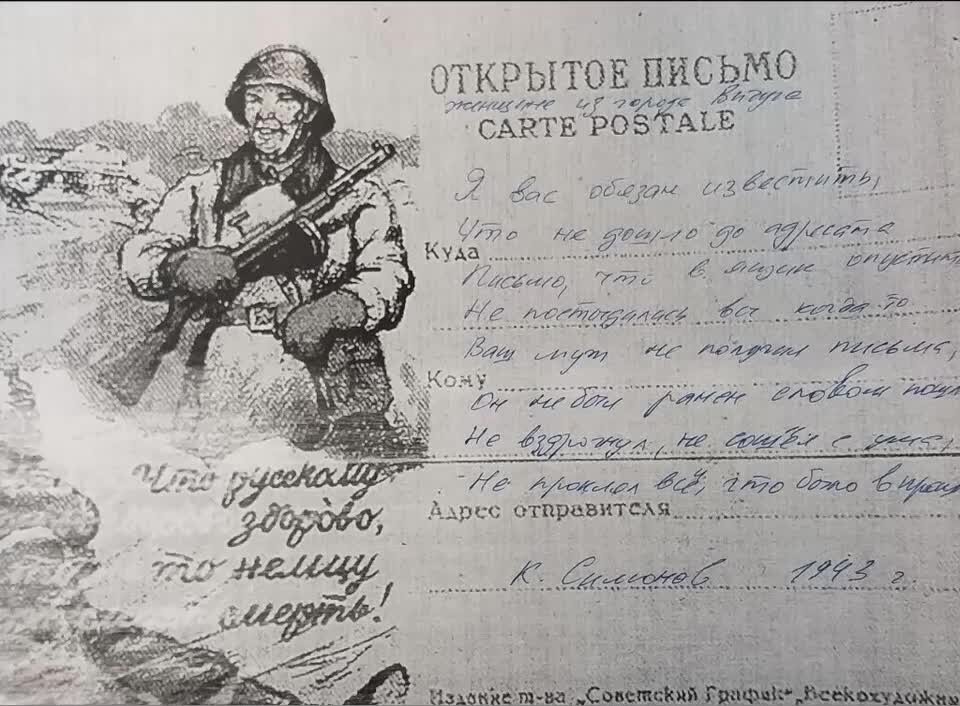 ОТКРЫТОЕ ПИСЬМО
женщине из города Вичуга
CARTE POSTALE
Я вас обязан известить,
Что не дошло до адресата
Куда
Письмо, что в ящик опустить
Не постыдались вы когда-то
Ваш муж не получил письма,
Кому
Он не был ранен словом пошл
Не вздрогнул, не сошёл с ума,
Не проклял всё, что было в прош
Адрес отправителя
К. Симонов 1943 г.
Что русскому
здорово,
то немцу
смерть!
Издание т-ва „Советский График" „Всекохудожни